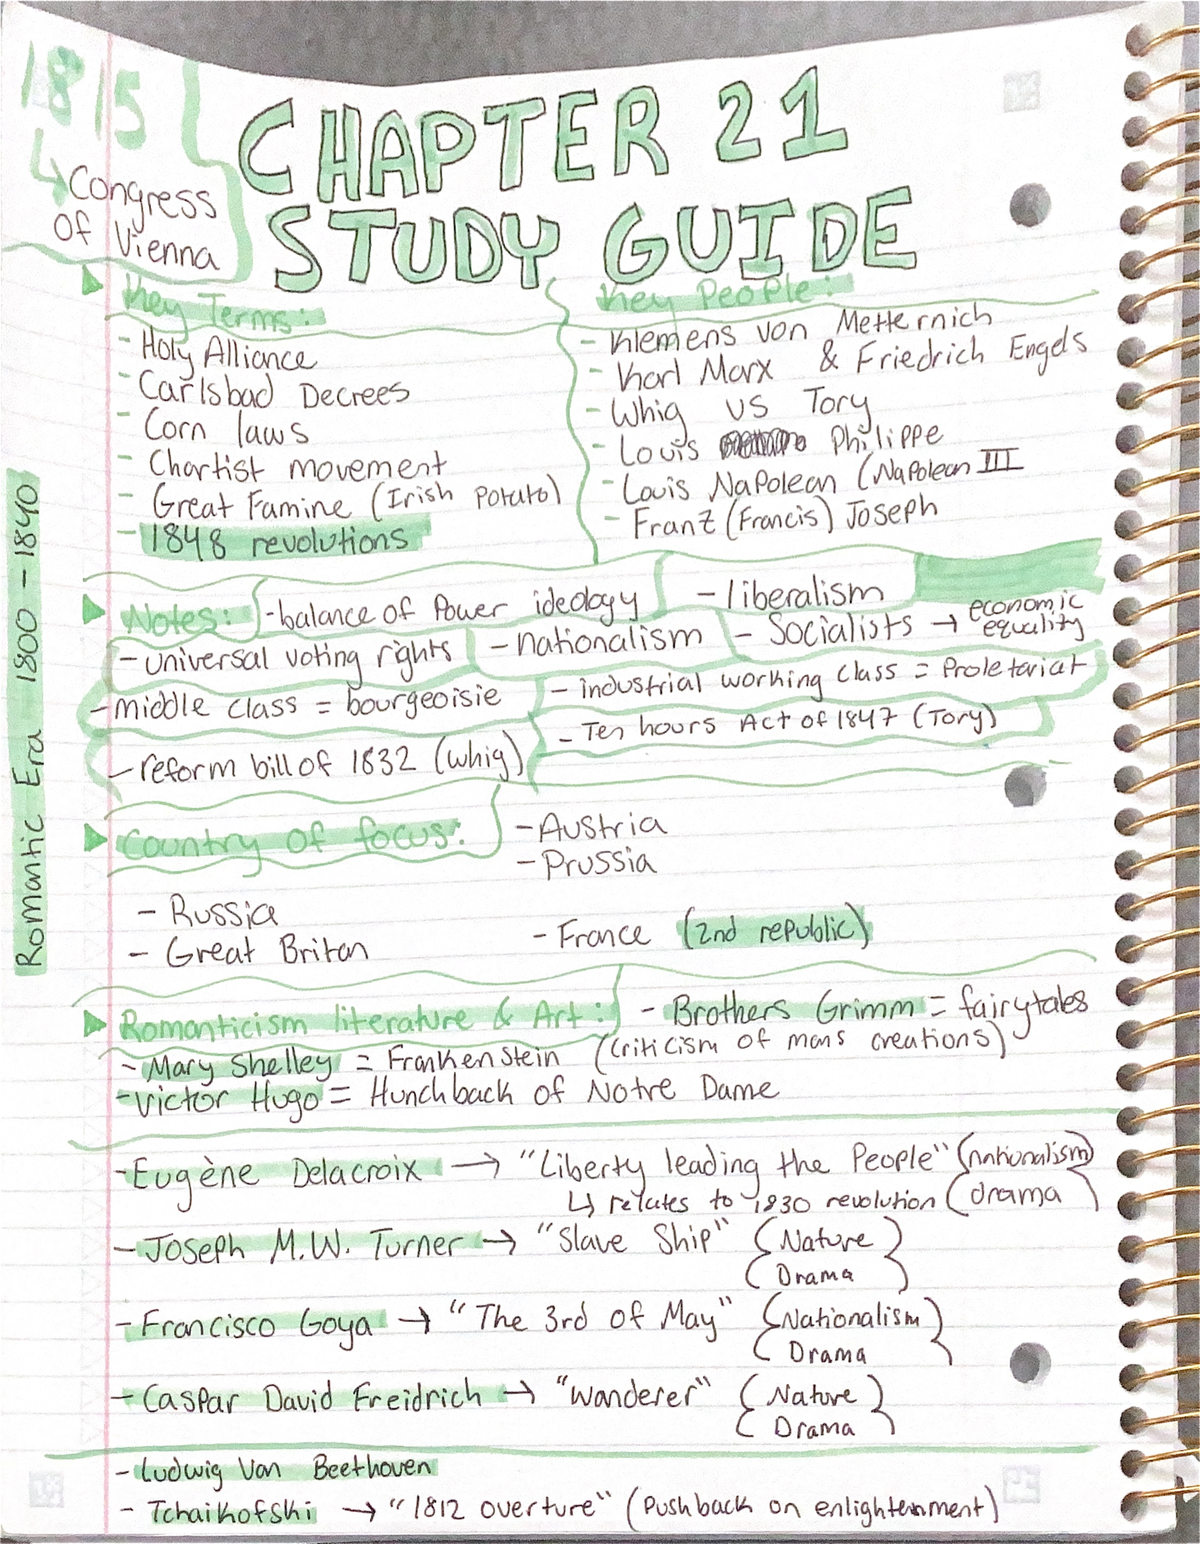 1815
↳ Congress
of Vienna
CHAPTER 21
STUDY GUIDE
Key Terms:
- Holy Alliance
- Carlsbad Decrees
- Corn laws
- Chartist movement
- Great Famine (Irish Potato)
- 1848 revolutions
Key People:
- Klemens von Metternich
- Karl Marx & Friedrich Engels
- Whig VS Tory
- Louis Philippe
- Louis Napolean (Napolean III
- Franz (Francis) Joseph
Romantic Era 1800 - 1840
Notes: - balance of Power ideology - liberalism
- universal voting rights - nationalism - Socialists → economic equality
- middle class = bourgeoisie - industrial working class = Proletariat
- reform bill of 1832 (whig) - Ten hours Act of 1847 (Tory)
Country of focus:
- Austria
- Prussia
- Russia
- Great Britan
- France (2nd republic)
Romanticism literature & Art: - Brothers Grimm = fairytales
- Mary Shelley = Frankenstein (criticism of mans creations)
- Victor Hugo = Hunchback of Notre Dame
- Eugène Delacroix → "Liberty leading the People" (nationalism)
↳ relates to 1830 revolution (drama)
- Joseph M.W. Turner → "Slave Ship" (Nature
Drama)
- Francisco Goya → "The 3rd of May" (Nationalism
Drama)
- Caspar David Freidrich → "Wanderer" (Nature
Drama)
- Ludwig Van Beethoven
- Tchaikofski → "1812 overture" (Pushback on enlightenment)